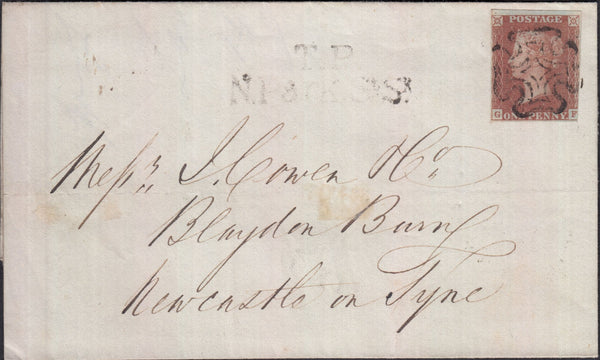 POSTAGE
G ONE PENNY F
T.P
Messrs. J. Cowen & Co.
Blaydon Burn
Newcastle on Tyne